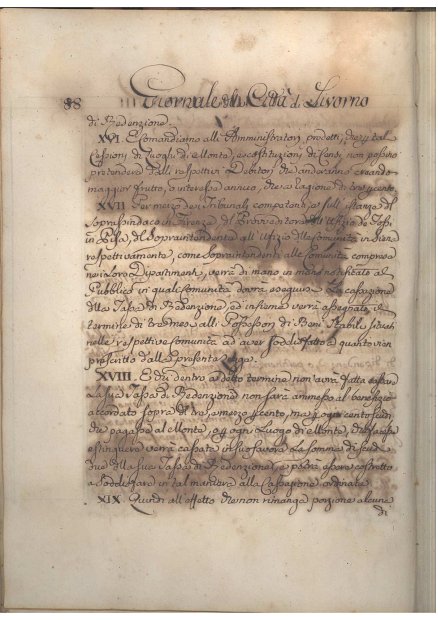 88 Giornale della Città di Livorno
di Redenzione.
XVI. E Comandiamo alli Amministratori predetti, che per tal
Cessioni di Luoghi di Monte, e costituzioni di Censi non possino
pretendere dalli respettivi Debitori che anderanno creando
maggior frutto, o interesse annuo, che a ragione di tre per cento.
XVII. Per mezzo dei Tribunali competenti, e sull' istanza del
Soprassindaco in Firenze del Provveditore dell' Ufizio de Fossi
in Pisa, del Sopraintendente all' Ufizio della Comunità in Siena
respettivamente, come Sopraintendenti alle Comunità comprese
nei loro Dipartimenti, verrà di mano in mano notificato al
Pubblico in quali Comunità dovrà eseguirsi la Cassazione
della Tassa di Redenzione, ed insieme verrà assegnato il
termine di tre mesi alli Possessori di Beni Stabili situati
nelle respettive Comunità ad aver soddisfatto a quanto vien
prescritto dalla presente Legge.
XVIII. E chi dentro a detto termine non avrà fatta cassare
la sua Tassa di Redenzione non sarà ammesso al benefizio
accordato sopra di tre, e mezzo per cento, ma per ogni cento scudi
che pagasse al Monte, o per ogni Luogo di Monte, che facesse
estinguere verrà cassata in suo favore la somma di scudi
due della sua Tassa di Redenzione, e potrà essere costretto
a soddisfare in tal maniera alla Cassazione ordinata.
XIX. Quindi all' effetto che non rimanga porzione alcuna
di